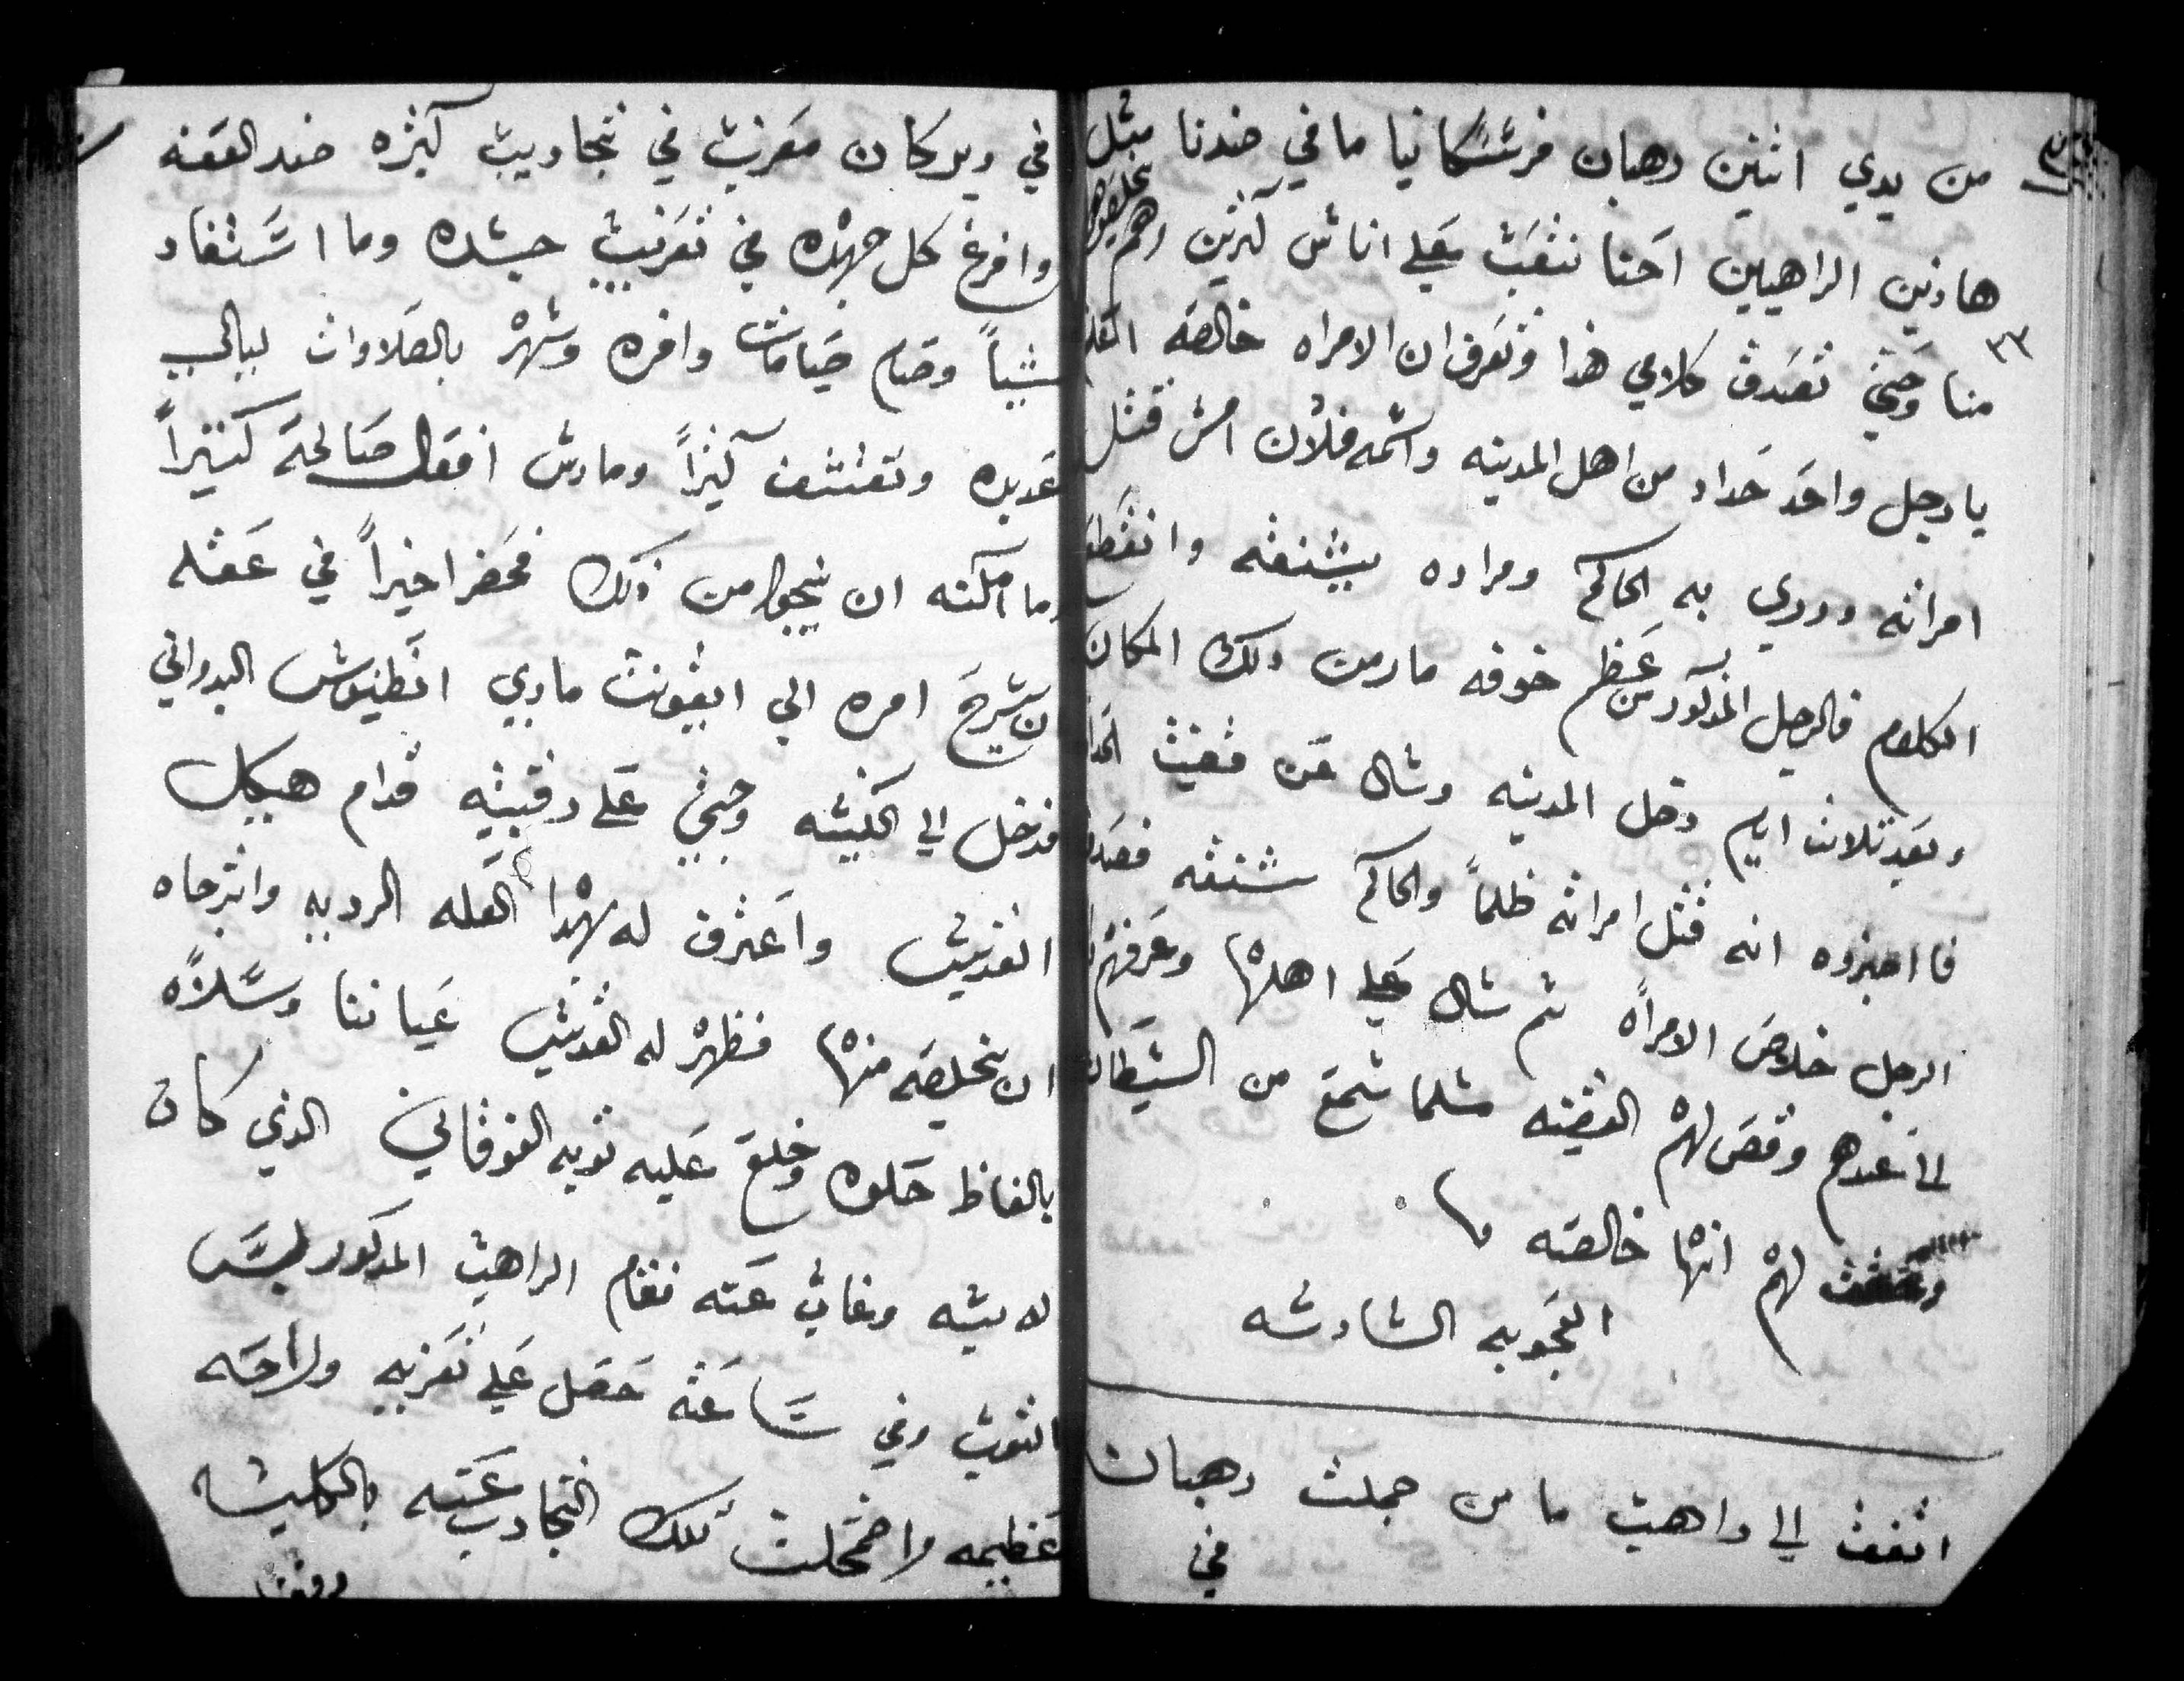 من يدي اثنين رهبان فرنسسكانيا ما في ضدنا مثل
هاذين الراهبين احنا نتعب علي اناس كثرين وهم يخلصوهم
٣٣
منا وحتي تصدق كلامي هذا وتعرف ان الامراه خالصه
يا رجل واحد حداد من اهل المدينه واسمه فلان امس قتل
امراته ودري به الحاكم ومراده يشنقه وانقطع
الكلام فالرجل المذكور من عظم خوفه مار من ذلك المكان
وبعد ثلاث ايام دخل المدينه وسال عن قضيت
فااخبروه انه قتل امراته ظلماً والحاكم شنقه فصدق
الرجل خلاص الامراه ثم سال علي اهلها وعرفهم
الي عندهم وقص لهم القضيه مثلما سمع من الشيطان
لهم انها خالصه
العجوبه السادسه
اتفق الي راهب ما من جملت رهبان
في
في دير كان معرب في تجاريب كثره ضد العفه
وافرغ كل جهده في تعريب جسده وما استفاد
شياً وصام صيامات وافره وسهر بالصلاوات ليالي
عديده وتقشف كثراً ومارس افعال صالحة كثيراً
وما امكنه ان ينجوا من ذلك فحضر اخيراً في عقله
ان يشرح امره الي ايقونت ماري انطنيوس البدواني
فدخل الي الكنيسه وجثي علي ركبتيه قدام هيكل
القديس واعترف له بهذا العله الرديه واترجاه
ان يخلصه منها فظهر له القديس عياننا وسلاه
بالفاظ حلوه وخلع عليه ثوبه الفوقاني الذي كان
لابسه وغاب عنه فقام الراهب المذكور لبس
الثوب وفي ساعته حصل علي تعزيه وراحه
عظيمه واضمحلت تلك التجارب عنه بالكليه